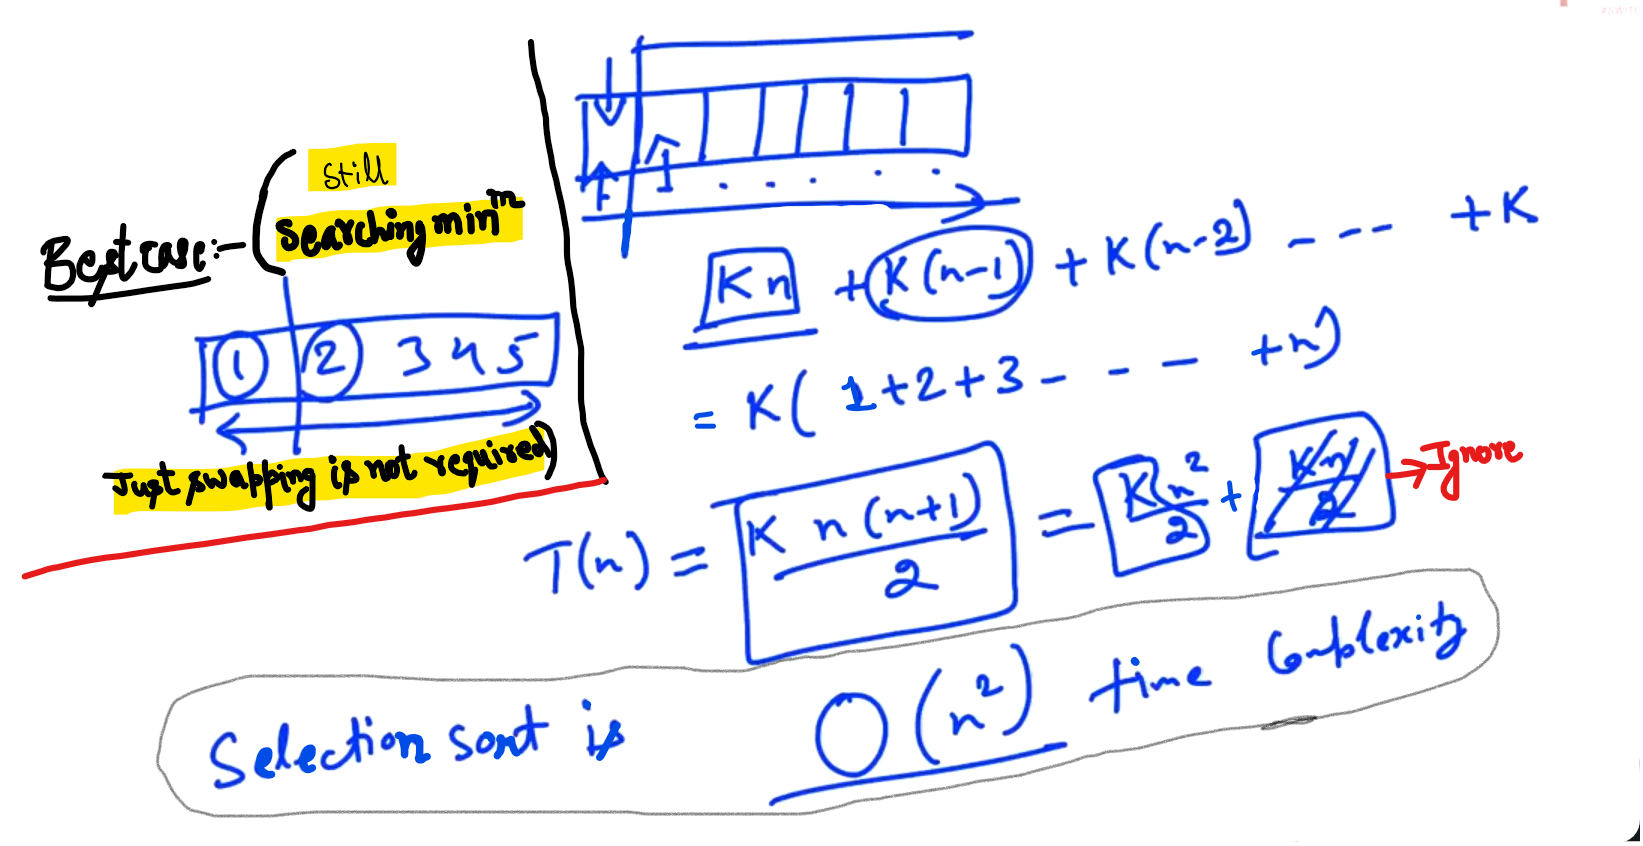 Best case:- (still
searching minᵐ
1 2 3 4 5
Just swapping is not required)
Kn + K(n-1) + K(n-2) - - - + K
= K( 1+2+3 - - - - +n)
T(n) = K n(n+1) / 2 = K n² / 2 + Kn / 2 → Ignore
Selection sort is O(n²) time Complexity